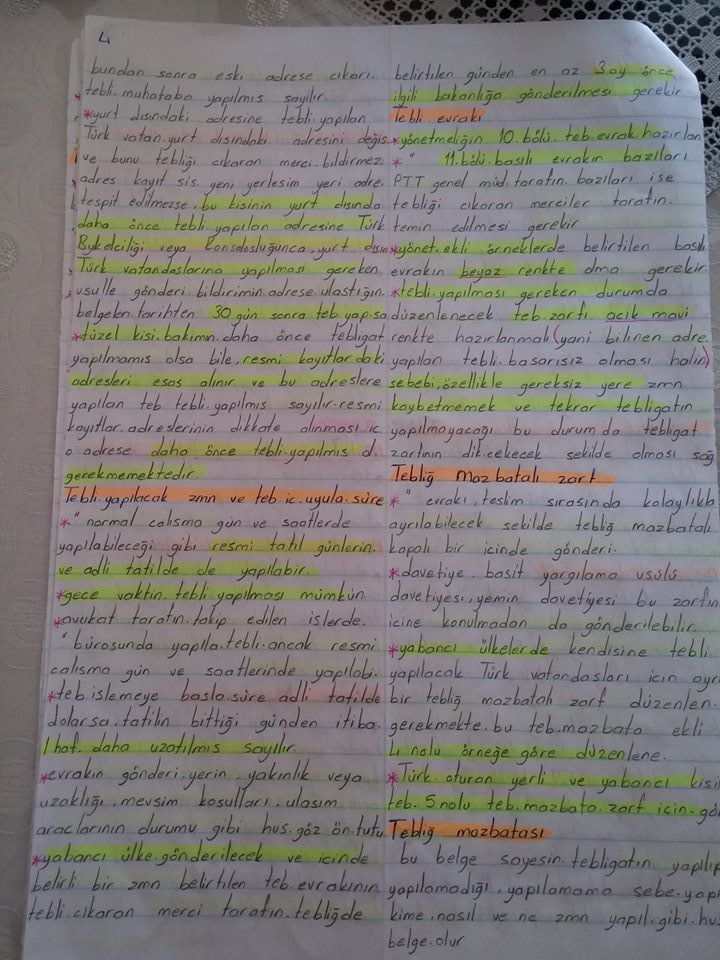 4
bundan sonra eski adrese cıkarı.
tebli.muhataba yapılmıs sayılır.
*yurt dısındaki adresine tebli.yapılan
Türk vatan.yurt dısındaki adresini değis.
ve bunu tebliği cıkaran merci.bildirmez
adres kayıt sis. yeni yerlesim yeri adre.
tespit edilmezse.bu kisinin yurt dısında
daha önce tebli.yapılan adresine Türk
Bykelciliği veya konsoslosluğunca.yurt dısın
Türk vatandaslarına yapılması gereken
usulle gönderi bildirimin adrese ulastığın.
belgelen.tarihten 30 gün sonra teb yap.sa
*tüzel kisi.bakımın.daha önce tebligat
yapılmamıs olsa bile.resmi kayıtlar.daki
adresleri esas alınır ve bu adreslere
yapılan teb tebli.yapılmıs sayılır-resmi
kayıtlar.adreslerinin dikkate alınması ic.
o adrese daha önce tebli.yapılmıs d.
gerekmemektedir.
Tebli.yapılacak zmn ve teb ic.uygula.süre
*" normal calısma gün ve saatlerde
yapılabileceği gibi resmi tatil günlerin.
ve adli tatilde de yapılabir.
*gece vaktin.tebli yapılması mümkün
*avukat tarafın.takip edilen islerde.
" bürosunda yapıla.tebli.ancak resmi
calısma gün ve saatlerinde yapılabi.
*teb.islemeye basla.süre adli tatilde
dolarsa.tatilin bittiği günden itiba.
1 haf. daha uzatılmıs sayılır.
*evrakın gönderi.yerin.yakınlık veya
uzaklığı.mevsim kosulları.ulasım
araclarının durumu gibi hus.göz ön.tutu
*yabancı ülke.gönderilecek ve icinde
belirli bir zmn belirtilen teb.evrakının
tebli.cıkaran merci tarafın.tebliğde
belirtilen günden en az 3 ay önce
ilgili bakanlığa gönderilmesi gerekir
Tebli evrakı
*yönetmeliğin 10.bölü. teb.evrak.hazırlan
*" 11.bölü.basılı evrakın bazıları
PTT genel müd.tarafın.bazıları ise
tebliği cıkaran merciler tarafın.
temin edilmesi gerekir
*yönet.ekli örneklerde belirtilen basılı
evrakın beyaz renkte olma gerekir.
*tebli.yapılması gereken durumda
düzenlenecek teb.zarfı acık mavi
renkte hazırlanmalı(yani bilinen adre.
yapılan tebli.basarısız olması halin)
sebebi.özellikle gereksiz yere zmn
kaybetmemek ve tekrar tebligatın
yapılmayacağı bu durum da tebligat
zarfının dik.cekecek sekilde olması sağ
Tebliğ mazbatalı zarf
*" evrakı.teslim sırasında kolaylıkla
ayrılabilecek sekilde tebliğ mazbatalı
kapalı bir icinde gönderi.
*davetiye.basit yargılama usülü
davetiyesi.yemin davetiyesi bu zarfın
icine konulmadan da gönderilebilir.
*yabancı ülkelerde kendisine tebli
yapılacak Türk vatandasları icin ayrı
bir tebliğ mazbatalı zarf düzenlen.
gerekmekte.bu teb.mazbata ekli
4 nolu örneğe göre düzenlene.
*Türk.oturan yerli ve yabancı kisi
teb. 5 nolu teb.mazbata.zarf icin.gö
Tebliğ mazbatası
bu belge sayesin.tebligatın yapılıp
yapılamadığı.yapılamama sebe.yapı
kime.nasıl ve ne zmn yapıl.gibi hus
belge.olur